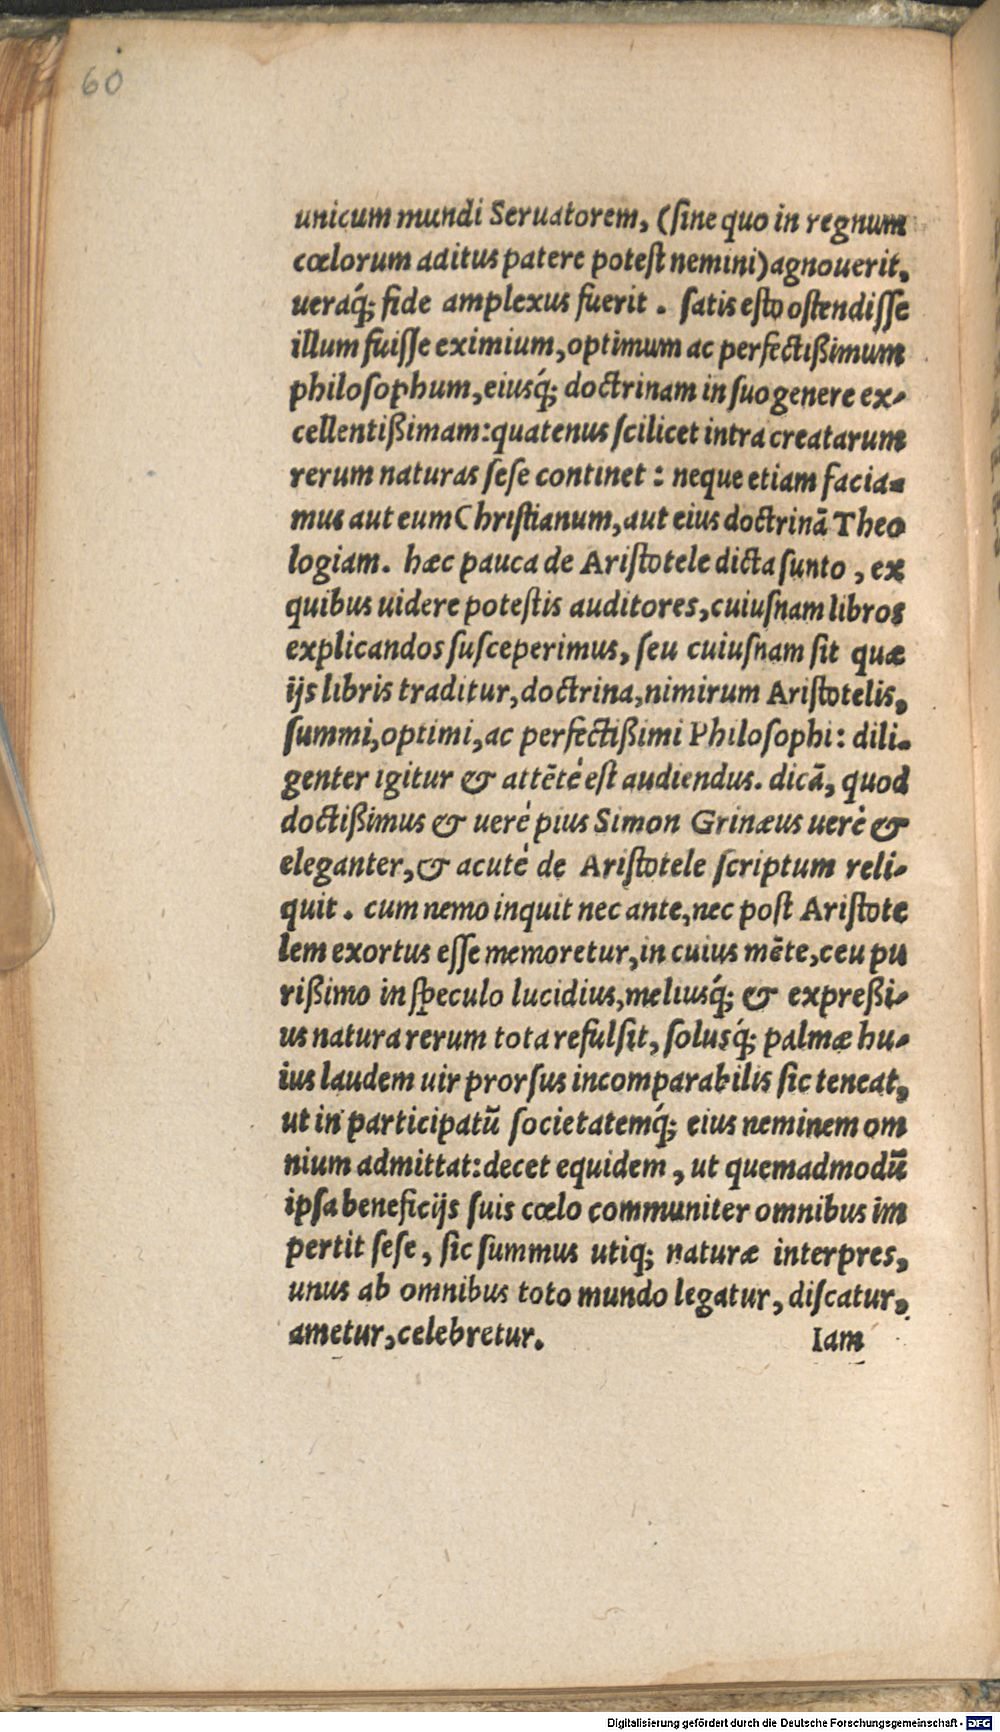 60
unicum mundi Seruatorem, (ſine quo in regnum
cœlorum aditus patere poteſt nemini) agnouerit,
ueraq́; fide amplexus fuerit. ſatis eſto oſtendiſſe
illum fuiſſe eximium, optimum ac perfectißimum
philoſophum, eiusq́; doctrinam in ſuo genere ex-
cellentißimam: quatenus ſcilicet intra creatarum
rerum naturas ſeſe continet: neque etiam facia-
mus aut eum Chriſtianum, aut eius doctrinā Theo
logiam. hæc pauca de Ariſtotele dicta ſunto, ex
quibus uidere poteſtis auditores, cuiuſnam libros
explicandos ſuſceperimus, ſeu cuiuſnam ſit quæ
ijs libris traditur, doctrina, nimirum Ariſtotelis,
ſummi, optimi, ac perfectißimi Philoſophi: dili-
genter igitur & attētè eſt audiendus. dicā, quod
doctißimus & uerè pius Simon Grinæus uerè &
eleganter, & acutè de Ariſtotele ſcriptum reli-
quit. cum nemo inquit nec ante, nec poſt Ariſtote
lem exortus eſſe memoretur, in cuius mēte, ceu pu
rißimo in ſpeculo lucidius, meliusq́; & expreßi-
us natura rerum tota refulſit, ſolusq́; palmæ hu-
ius laudem uir prorſus incomparabilis ſic teneat,
ut in participatū ſocietatemq́; eius neminem om
nium admittat: decet equidem, ut quemadmodū
ipſa beneficijs ſuis cœlo communiter omnibus im
pertit ſeſe, ſic ſummus utiq; naturæ interpres,
unus ab omnibus toto mundo legatur, diſcatur,
ametur, celebretur.
Iam
Digitalisierung gefördert durch die Deutsche Forschungsgemeinschaft - DFG